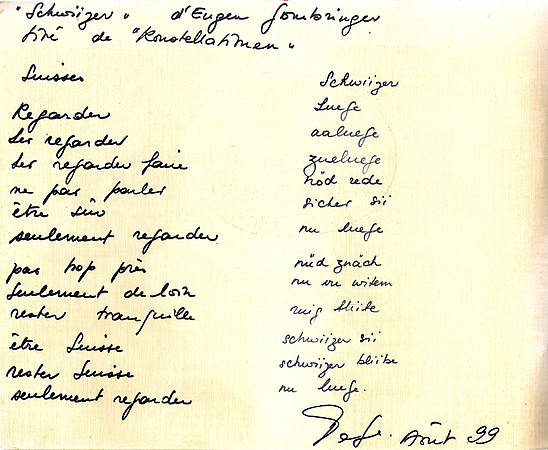 "Schwiizer" d'Eugen Gomringer
tiré de "Konstellationen"
Suisses
Regarder
Les regarder
Les regarder faire
ne pas parler
être sûr
seulement regarder
pas trop près
seulement de loin
rester tranquille
être Suisse
rester Suisse
seulement regarder
Schwiizer
Luege
aaluege
zueluege
nöd rede
sicher sii
nu luege
nüd znäch
nu vu witem
ruig bliibe
schwiizer sii
schwiizer bliibe
nu luege.
Août 99